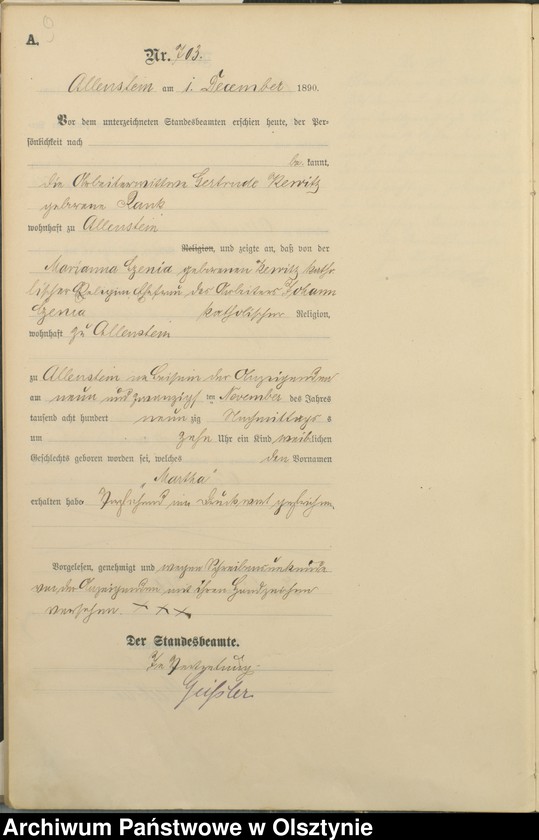 A.
9
Nr. 703.
Allenstein am 1. December 1890.
Vor dem unterzeichneten Standesbeamten erschien heute, der Per-
sönlichkeit nach
be kannt,
die Arbeiterwittwe Gertrude Kewitz
geborene
wohnhaft zu Allenstein
Religion, und zeigte an, daß von der
Marianna Czenia geborenen Kewitz katho-
lischer Religion Ehefrau des Arbeiters Johann
Czenia katholischer Religion,
wohnhaft zu Allenstein
zu Allenstein in Beisein der Anzeigenden
am neun und zwanzigsten November des Jahres
tausend acht hundert neun zig Nachmittags
um zehn Uhr ein Kind weiblichen
Geschlechts geboren worden sei, welches den Vornamen
„Martha"
erhalten habe. Vorstehend ein Druckwort gestrichen.
Vorgelesen, genehmigt und wegen Schreibensunkunde
von der Anzeigenden mit ihren Handzeichen
versehen. XXX
Der Standesbeamte.
In Vertretung.
Geißler
Archiwum Państwowe w Olsztynie